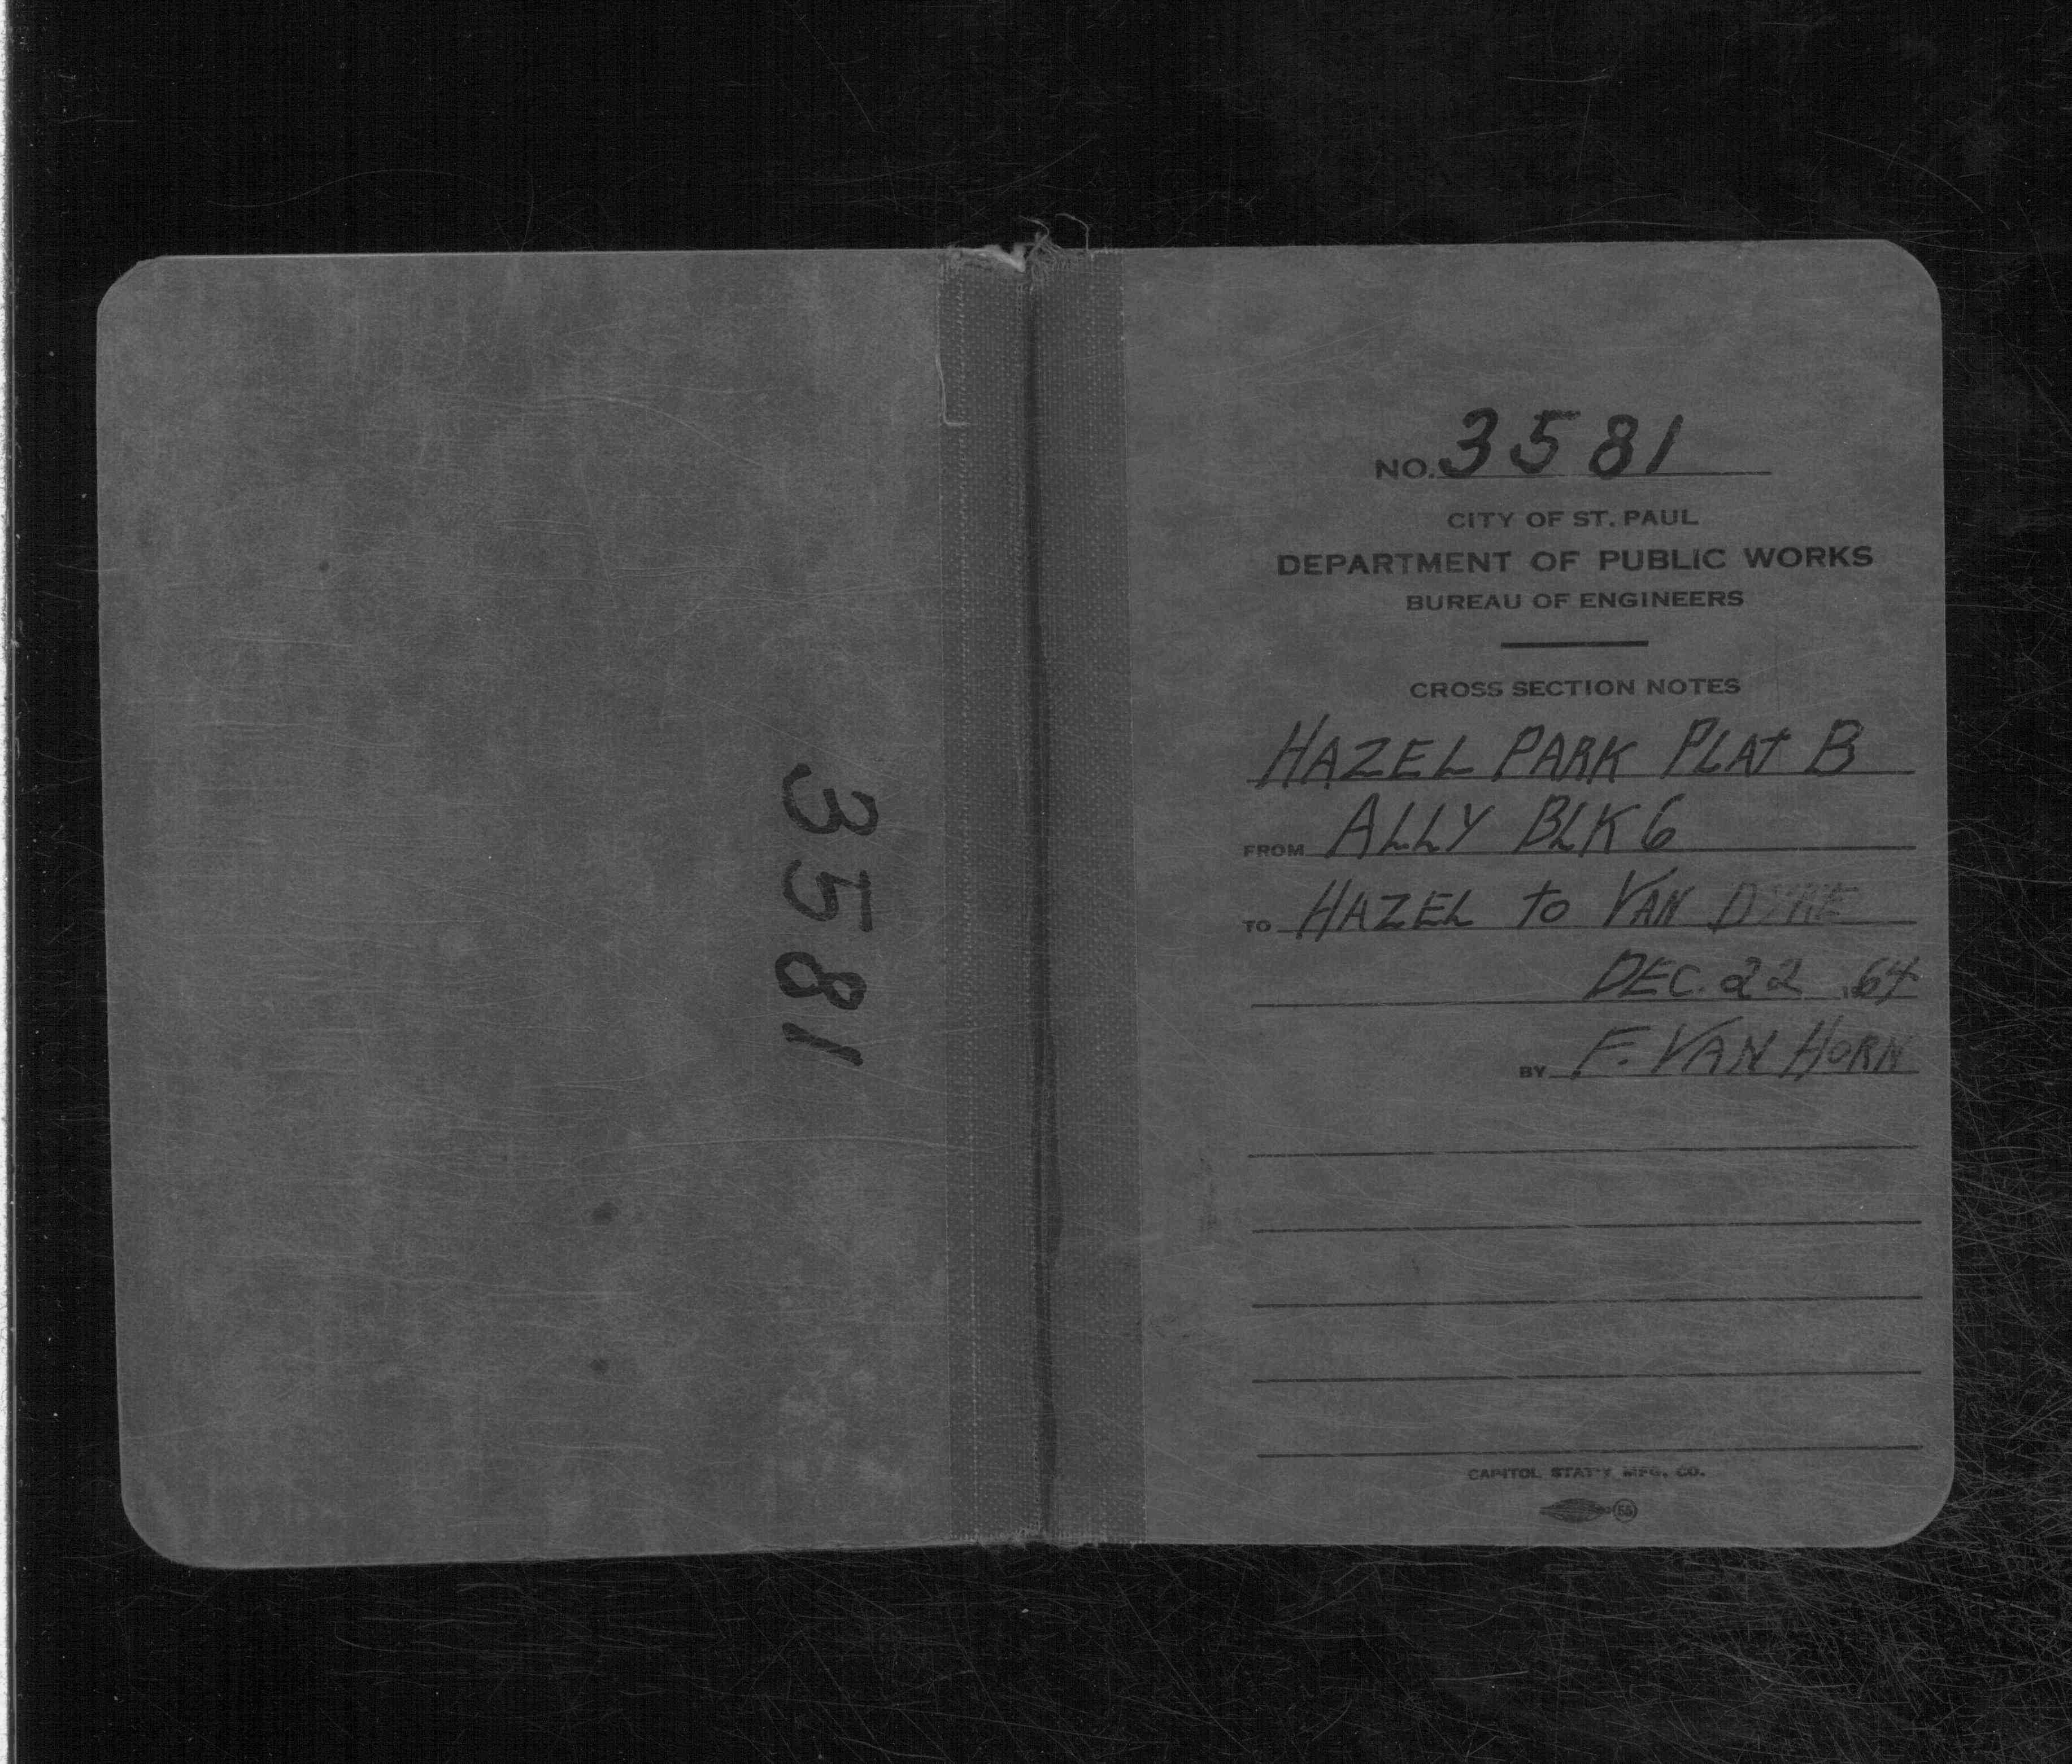 3581
NO. 3581
CITY OF ST. PAUL
DEPARTMENT OF PUBLIC WORKS
BUREAU OF ENGINEERS
CROSS SECTION NOTES
HAZEL PARK PLAT B
FROM ALLY BLK 6
TO HAZEL to VAN DYKE
DEC. 22 64
BY F. VAN HORN
CAPITOL STAT'Y MFG. CO.